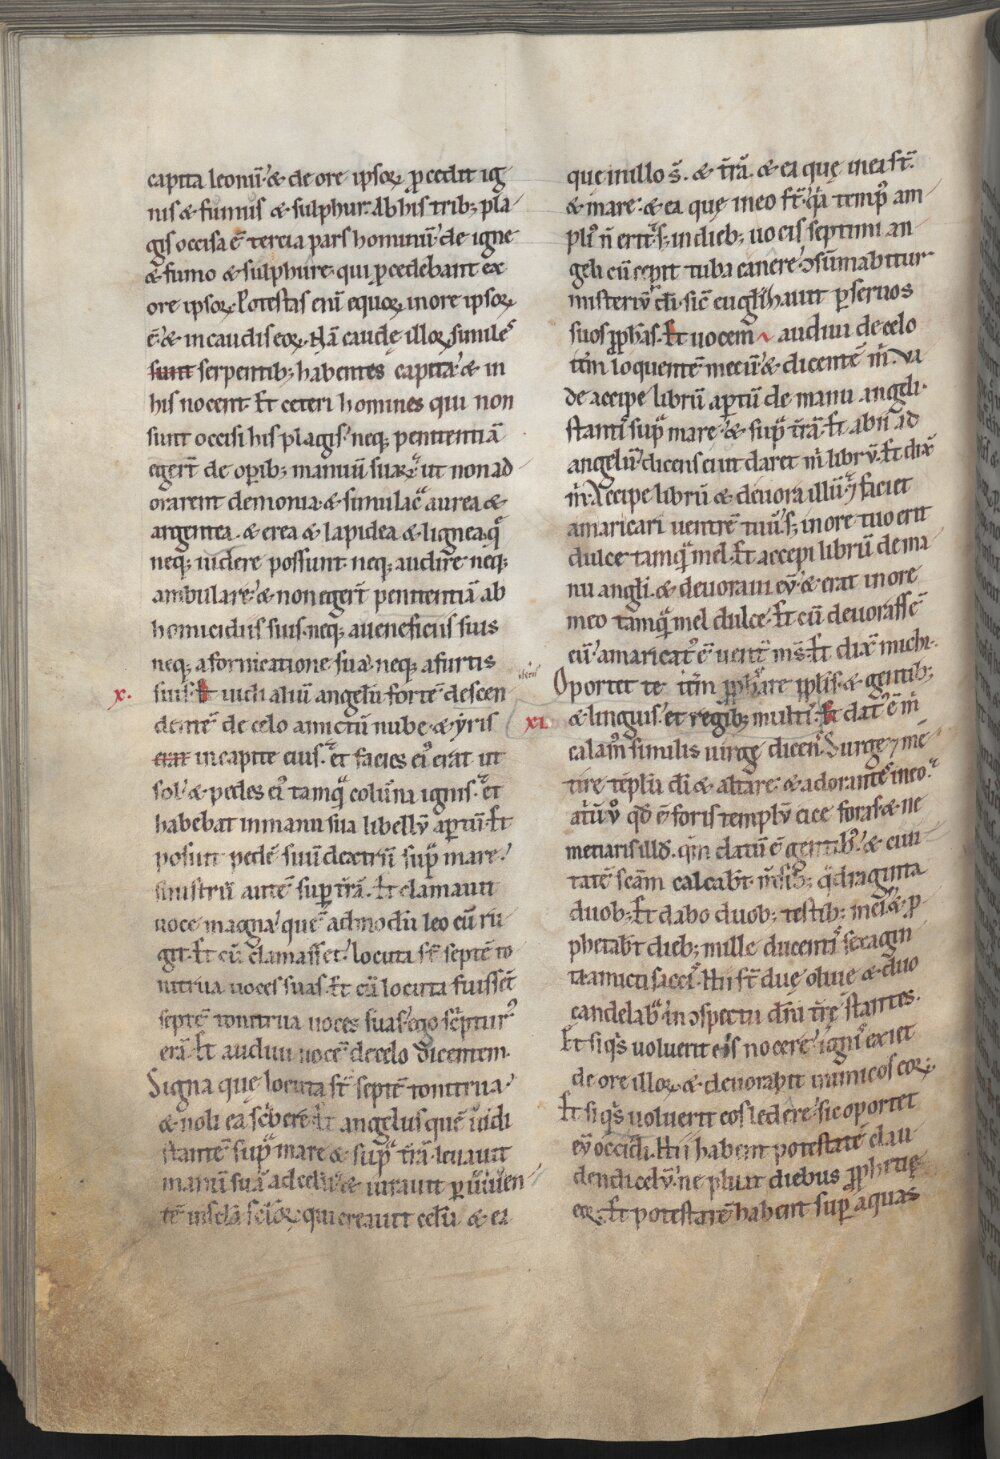 capita leonu᷑ & de ore ipsoꝝ ꝓcedit ig
nis & fumus & sulphur. Ab his trib; pla
gis occisa ē tercia pars hominū de igne
& fumo & sulphure. qui ꝓcedebant ex
ore ipsoꝝ. Potestas enī equoꝝ in ore ipsoꝝ
ē & in caudis eoꝝ. Nā caudę illoꝝ similes
sunt serpentib; habentes capita & in
his nocent. Et ceteri homines qui non
sunt occisi his plagis neq; penitentiā
egerт̄ de operib; manuū suaꝝ ut non ad
orarent demonia & simulac̄ aurea &
argentea. & erea & lapidea & lignea. q̄
neq; uidere possunt neq; audire neq;
ambulare & non egerт̄ penitentiā ab
homicidiis suis. neq; a ueneficiis suis
neq; a fornicatione sua neq; a furtis
x. suis. Et uidi aliū angelū fortē descen
dentē de celo amictū nube & yris
erat in capite eius. et facies ei᷒ erat ut
sol & pedes ei᷒ tamq̄ colūna ignis. et
habebat in manu sua libellū aꝑtū. Et
posuit pedē suū dextrū sup mare.
sinistrū autē suꝑ t̄rā. Et clamauit
uoce magna quē admodū leo cū ru
git. Et cū clamasset. locuta st̄ septē to
nitrua uoces suas. Et cū locuta fuissēt
septē tonitrua uoces suas ego sc̄ptur᷒
erā. Et audiui uocē de celo dicentem.
Signa que locuta st̄ septē tonitrua.
& noli ea sc̄bere. Et angelus quē uidi
stantē sup mare & sup t̄rā. leuauit
manū suā ad celū & iurauit ꝑ uiuen
tē in sc̄la sc̄loꝝ. qui creauit celū & ea
que in illo s̄. & t̄rā. & ea quę in ea st̄.
& mare. & ea quę in eo st̄. q̄a temp᷒ am
pli᷒ n̄ erit. s; in dieb; uocis septimi an
geli cū cepit tuba canere. ↄsūmabitur
misteriū d̄i. sic̄ euḡlizauit ꝑ seruos
suos ꝓphas. Et uocem audiui de celo
it̄m loquentē mecū & dicentē m̄. Va
de accipe librū aꝑtū de manu angeli
stantis sup mare & sup t̄rā. Et abii ad
angelū dicens ei ut daret m̄ librū. Et dix̄
m̄. Accipe librū & deuora illū. & faciet
amaricari uentrē tuū. s; in ore tuo erit
dulce tamq̄ mel. Et accepi librū de ma
nu angli. & deuoraui eū. & erat in ore
meo tamq̄ mel dulce. Et cū deuorassē
eū amaricat᷒ ē uent̄ ms̄. Et dix̄ michi.
Oportet te it̄m ꝓphare ppl̄is & gentib;
xi. & linguis. et regib; multis. Et dat᷒ ē m̄
calam᷒ similis uirgę dicen᷒. Surge & me
tire tēplū d̄i & altare. & adorantes in eo.
atriū u᷒ qd̄ ē foris templū eice foras & ne
metiaris illd̄. q̄m datū ē gentib᷒. & ciui
tatē sc̄am calcabт̄ m̄sib; q̄draginta
duob;. Et dabo duob; testib; meis & ꝓ
phetabт̄ dieb; mille ducentis sexagin
ta amicti saccis. Hii st̄ duę oliuę & duo
candelab᷑ in ↄspectu dn̄i t̄rę stantes.
Et siq̄s uoluerit eis nocere ignis exiet
de ore illoꝝ & deuorabit inimicos eoꝝ.
Et siq̄s uoluerit eos ledere sic oportet
eū occidi. Hii habent potestatē clau
dendi celū. ne pluat diebus ꝓphetię
eoꝝ. Et potestatē habent suꝑ aquas